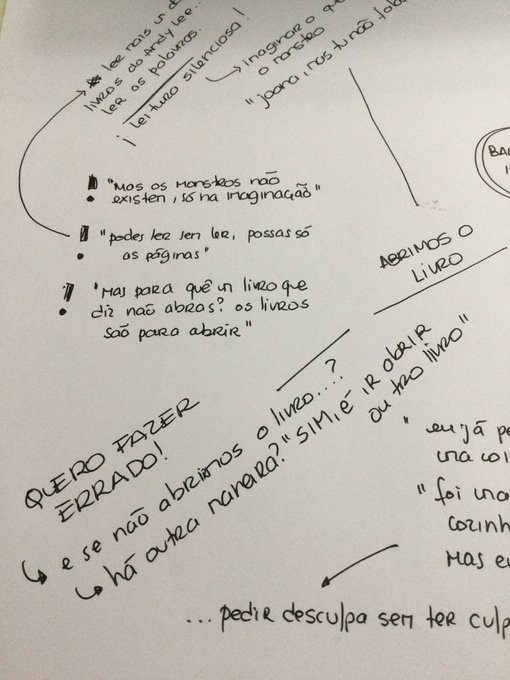 ler mais un d
livros do Andy Lee...
ler as palavras.
¡ leitura silenciosa!
imaginar o que
o monstro
"joana, nos tu não fala
"Mas os monstros não
existen, só na imaginação"
"podes ler sen ler, passas só
as páginas"
"Mas para quê un livro que
diz não abras? os livros
são para abrir"
BA
ABRIMOS O
LIVRO
QUERO FAZER
ERRADO!
e se não abrimos o livro...?
há outra maneira? "SIM, é IR abrir
outro livro"
"eu já pe
una coi
"foi una
cozinh
Mas eu
...pedir desculpa sem ter culp